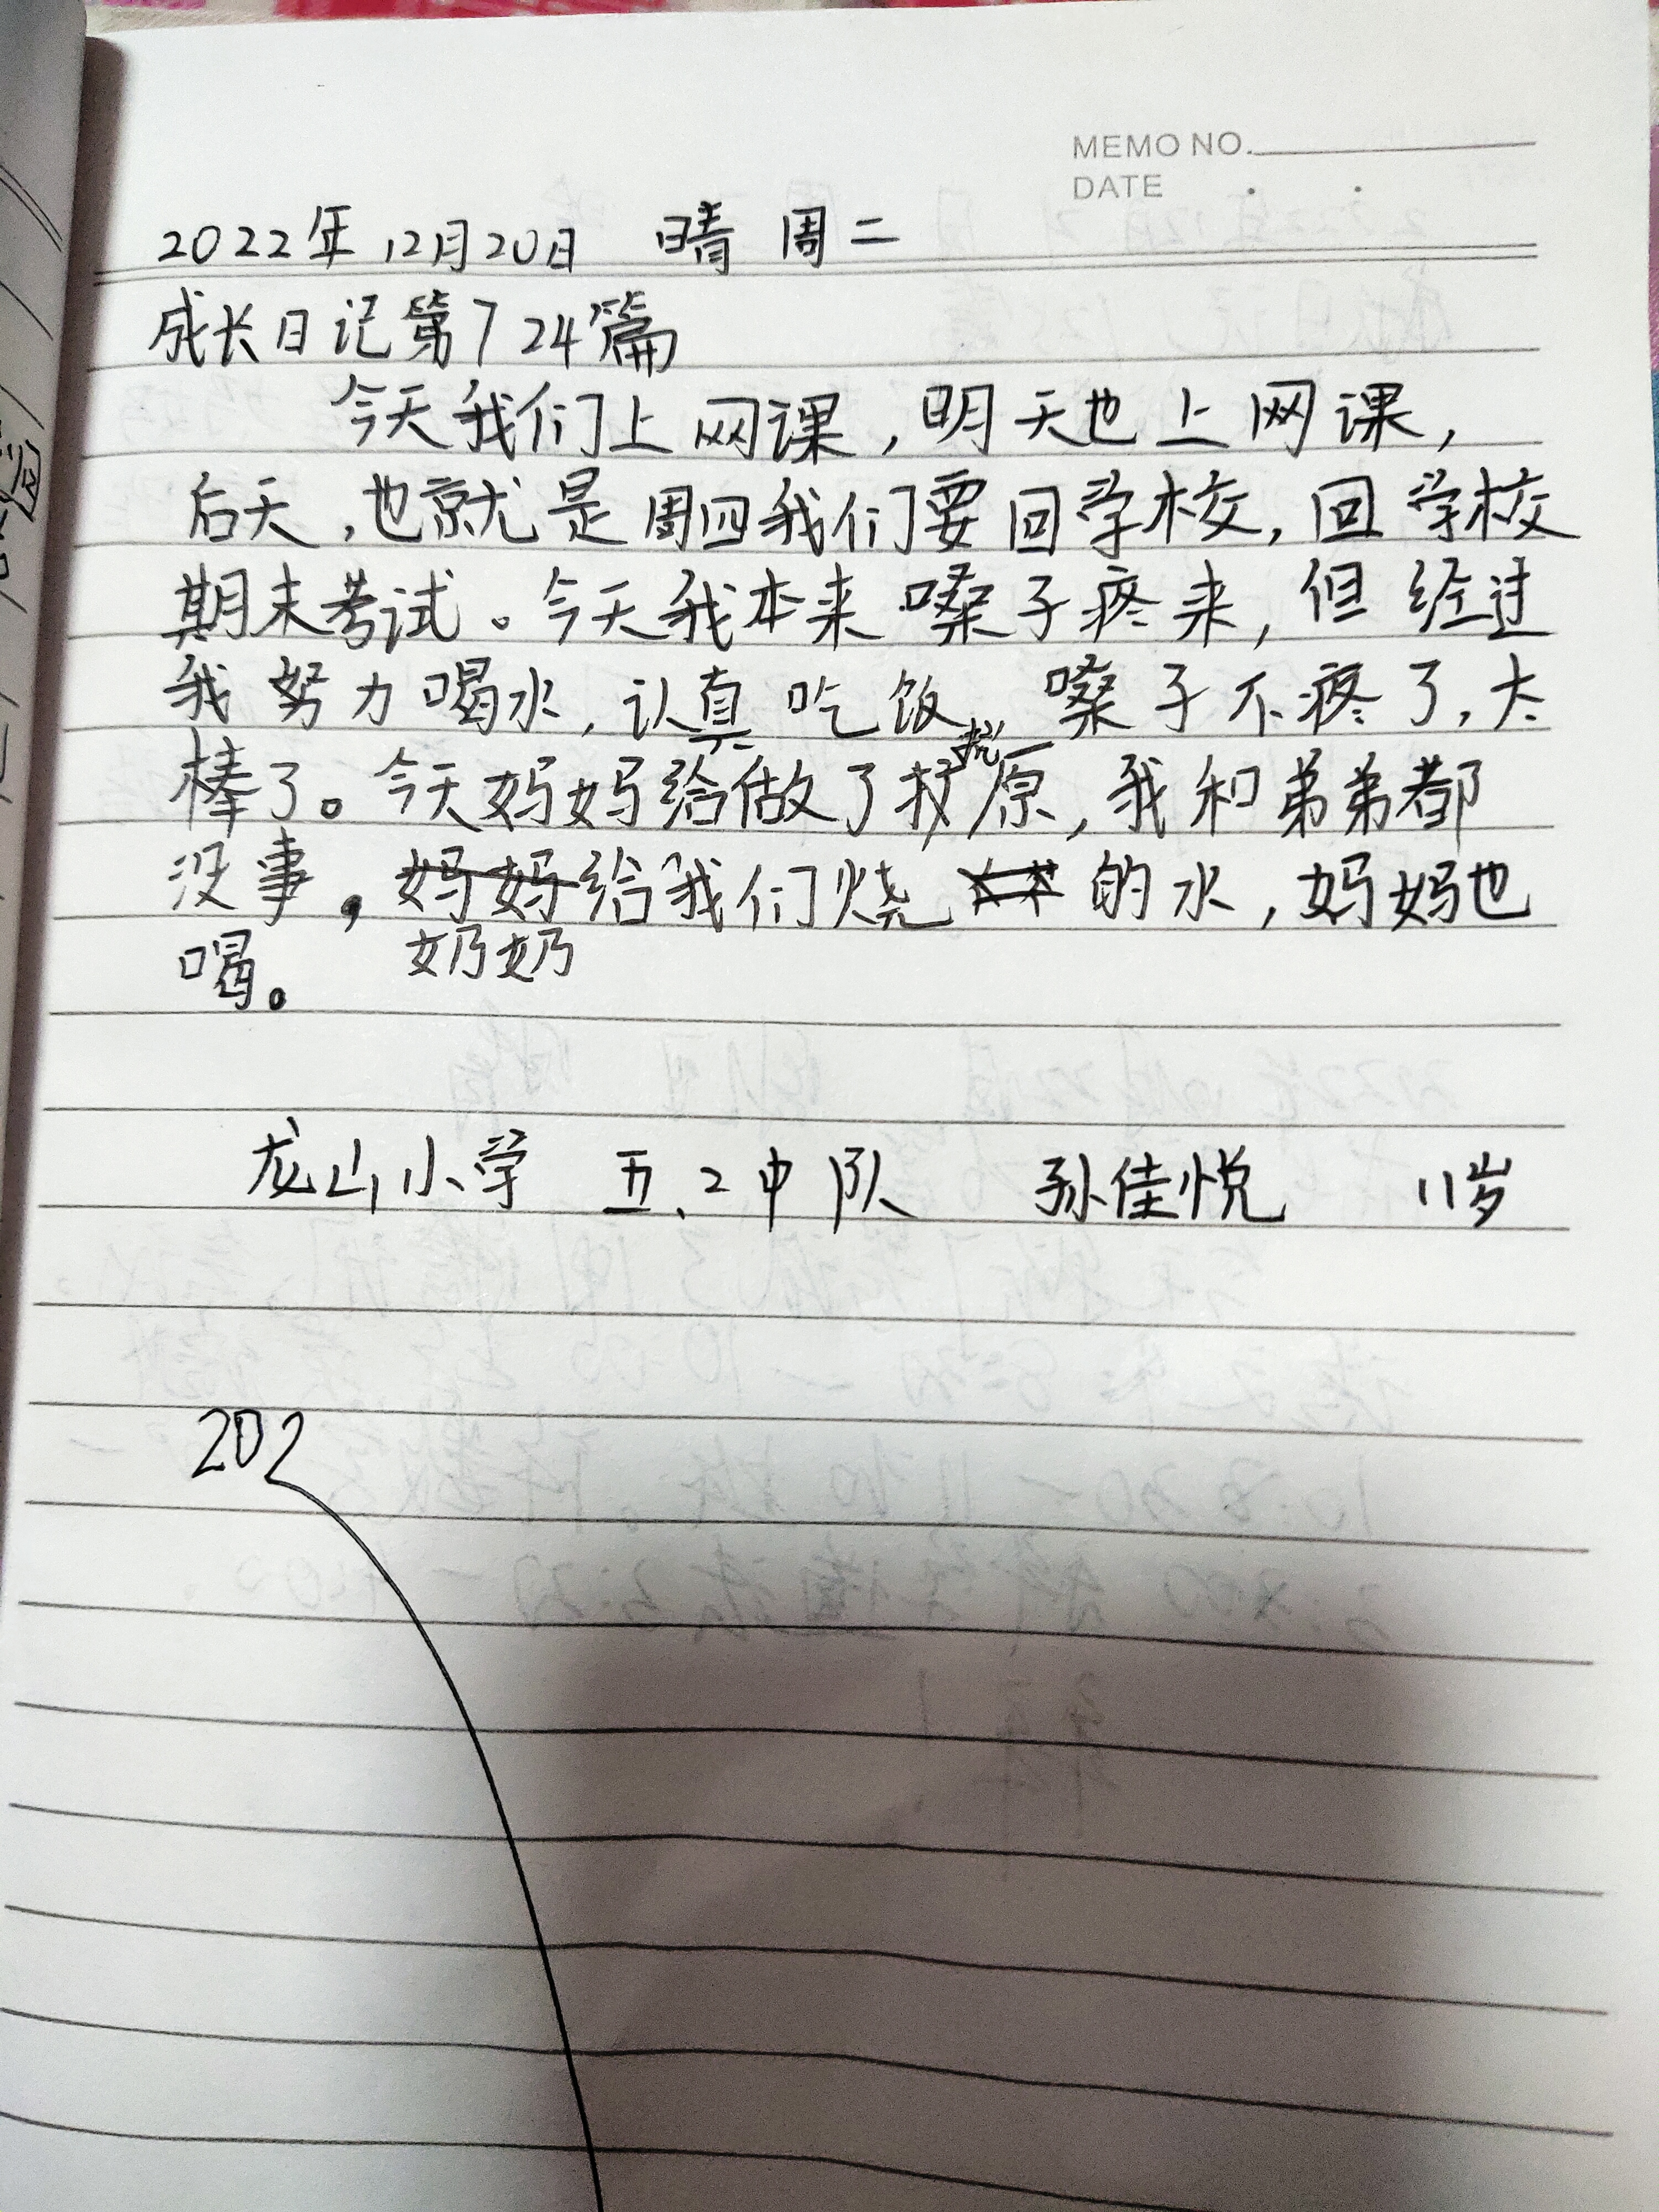 MEMO NO.
DATE . .
2022年12月20日 晴 周二
成长日记第724篇
今天我们上网课，明天也上网课，
后天，也就是周四我们要回学校，回学校
期末考试。今天我本来嗓子疼来，但经过
我努力喝水，认真吃饭，嗓子不疼了，太
棒了。今天妈妈给做了抗原，我和弟弟都
没事，奶奶给我们烧的水，妈妈也
喝。
龙山小学 五、2中队 孙佳悦 11岁
202